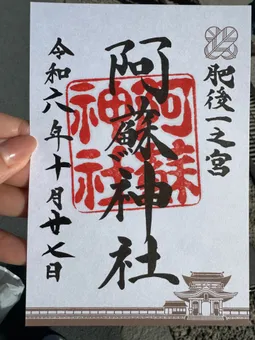 肥後一之宮
阿蘇神社
阿蘇神社
令和六年十月廿七日